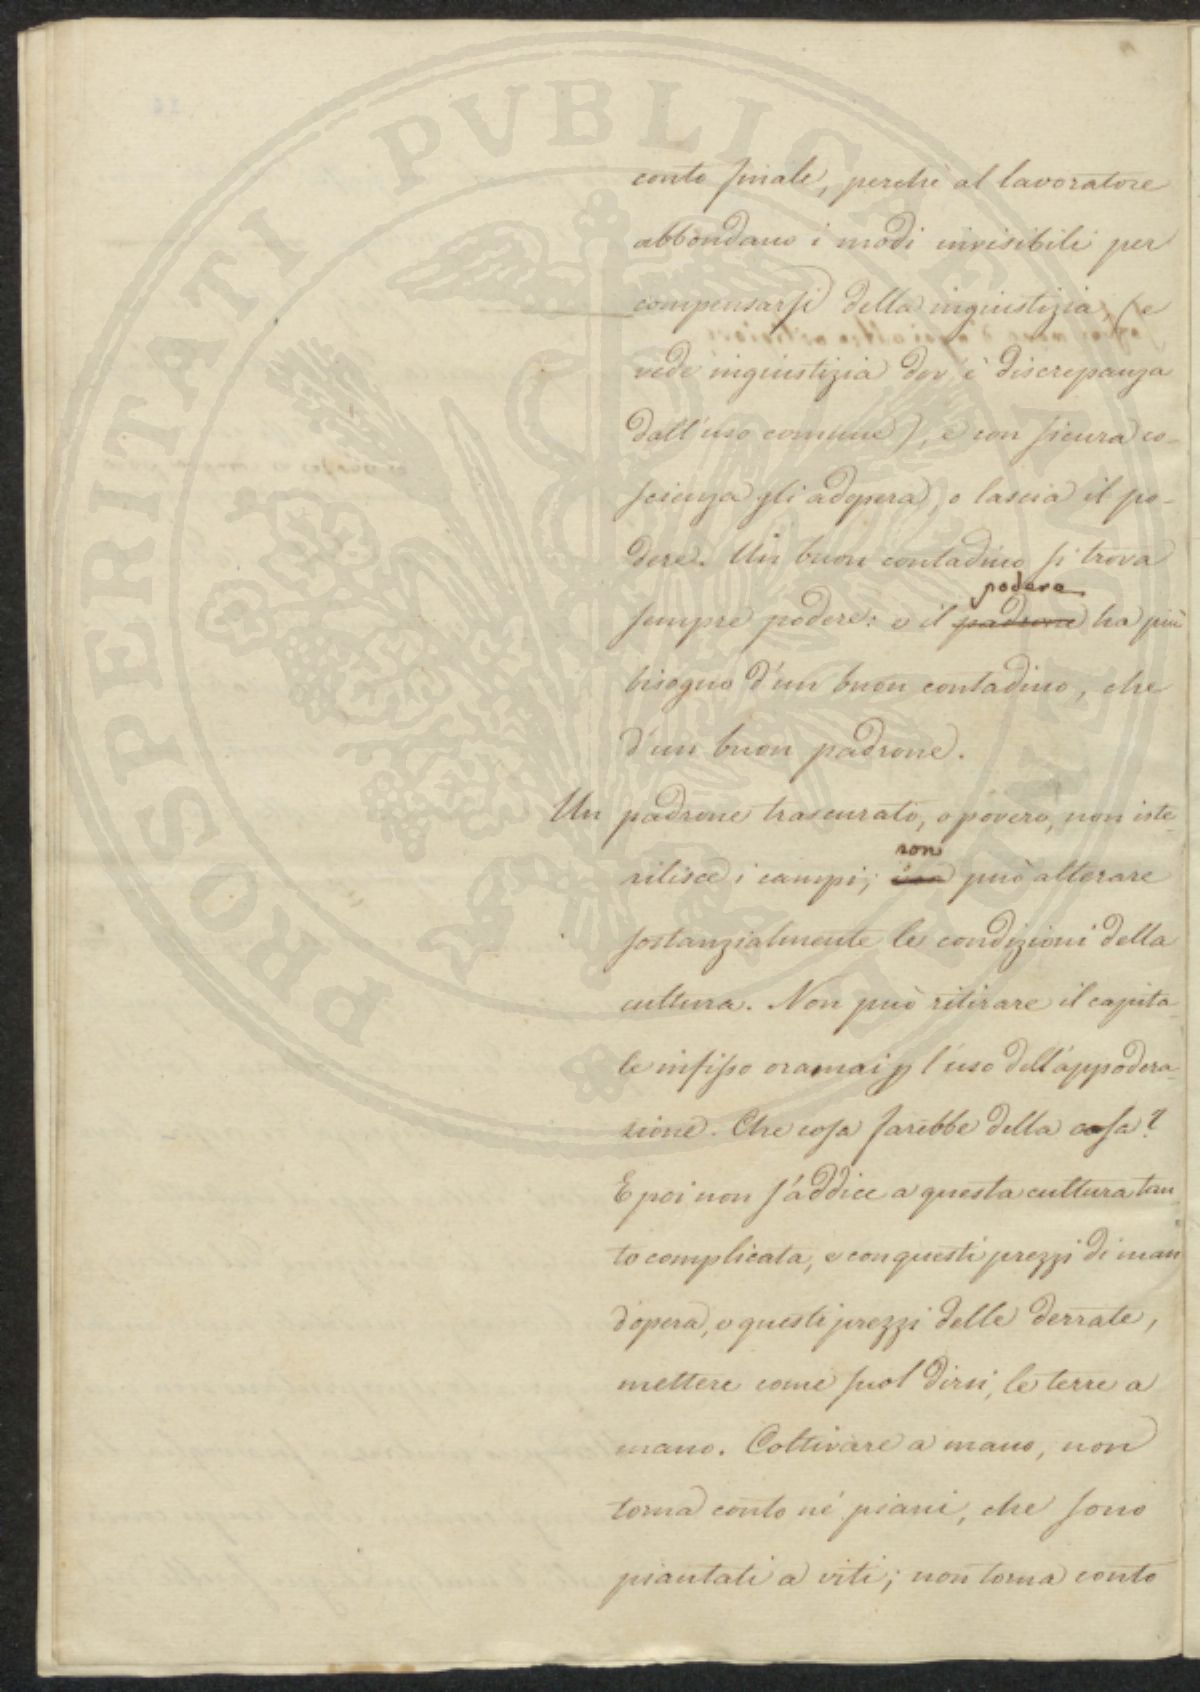 PROSPERITATI PVBLICAE AVGENDAE
conto finale, perchè al lavoratore
abbondano i modi invisibili per
compensarsi della ingiustizia, (e
vede ingiustizia dov'è discrepanza
dall'uso comune), e con sicura co-
scienza gli adopera, o lascia il po-
dere. Un buon contadino si trova
podere
sempre podere: e il padrone ha più
bisogno d'un buon contadino, che
d'un buon padrone.
Un padrone trascurato, o povero, non iste-
non
rilisce i campi; può alterare
sostanzialmente le condizioni della
cultura. Non può ritirare il capita-
le infisso oramai p l'uso dell'appodera-
zione. Che cosa farebbe della casa?
E poi non s'addice a questa cultura tan-
to complicata, e con questi prezzi di man
d'opera, e questi prezzi delle derrate,
mettere come suol dirsi, le terre a
mano. Coltivare a mano, non
torna conto né piani, che sono
piantati a viti; non torna conto